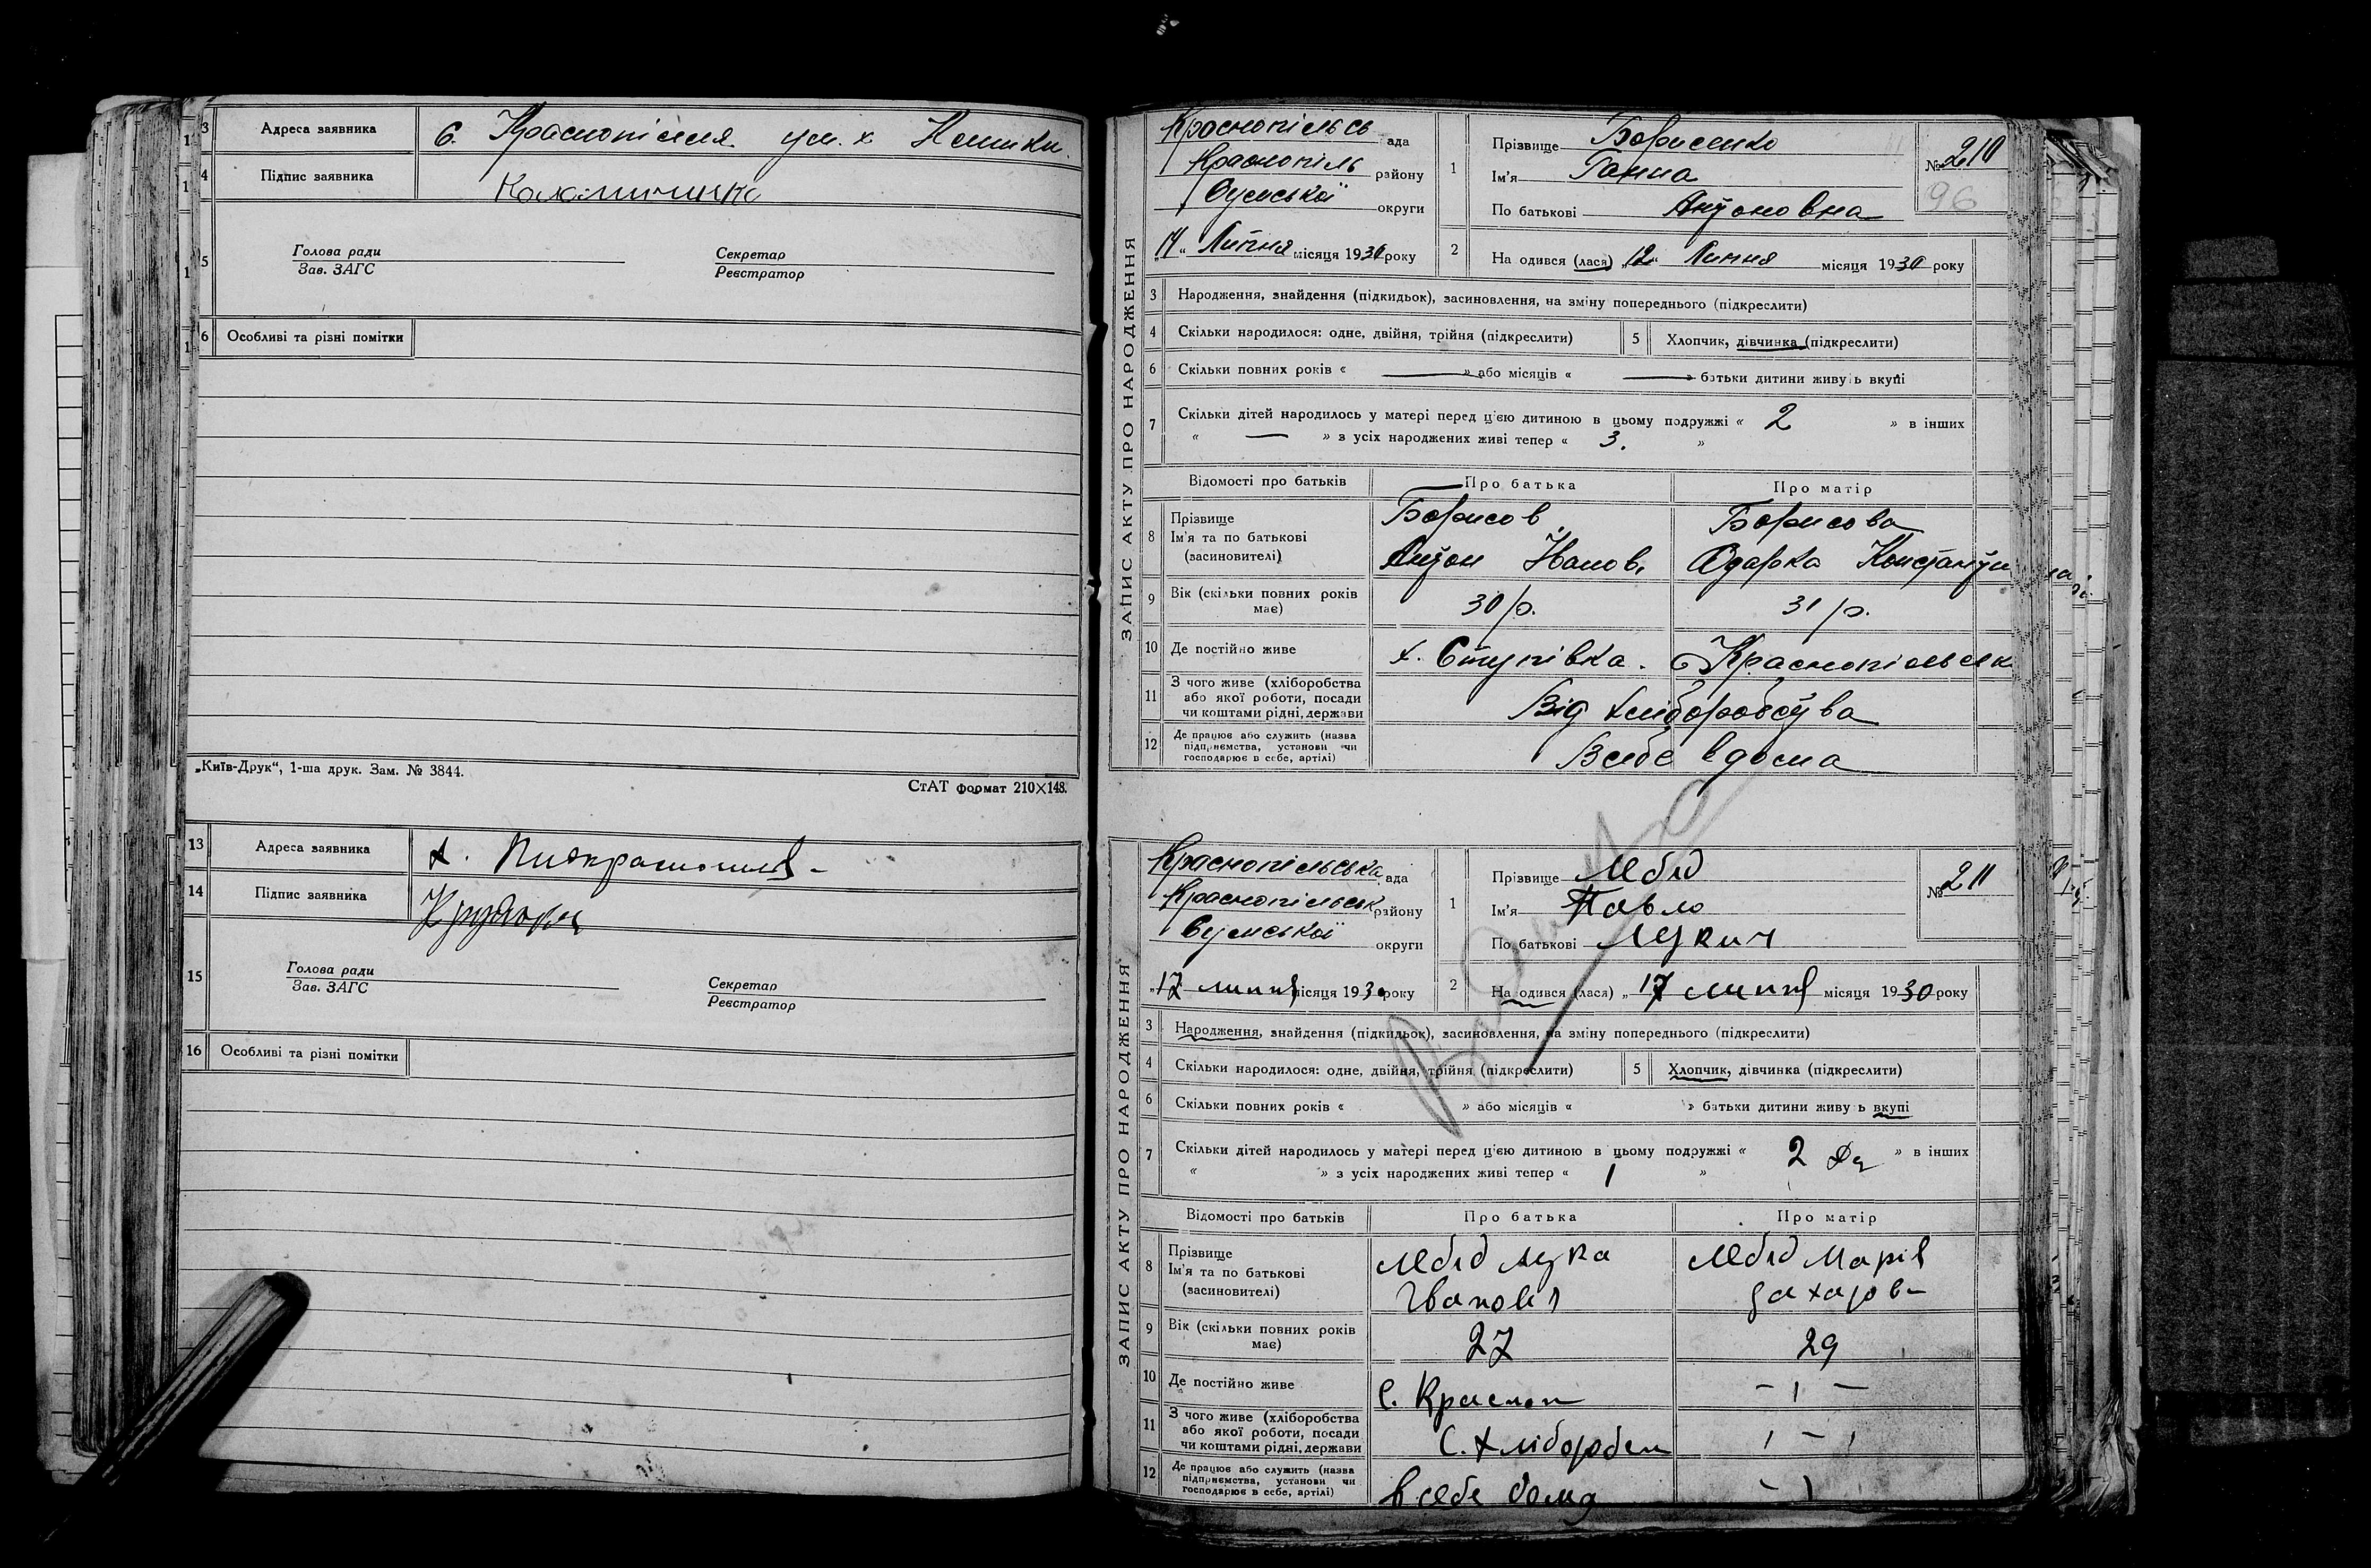 13 Адреса заявника с. Краснопілля ум. х
14 Підпис заявника
15 Голова ради
Зав. ЗАГС
Секретар
Реєстратор
16 Особливі та різні помітки
„Київ-Друк“, 1-ша друк. Зам. № 3844.
СтАТ формат 210×148.
13 Адреса заявника х.
14 Підпис заявника
15 Голова ради
Зав. ЗАГС
Секретар
Реєстратор
16 Особливі та різні помітки
ЗАПИС АКТУ ПРО НАРОДЖЕННЯ
Краснопільсь ада
Краснопіль району
Сумської округи
„14“ Липня місяця 1930 року
1 Прізвище Борисенко
Ім'я Ганна
По батькові Антоновна
№ 210
96
2 На одився (лася) „12“ Липня місяця 1930 року
3 Народження, знайдення (підкидьок), засиновлення, на зміну попереднього (підкреслити)
4 Скільки народилося: одне, двійня, трійня (підкреслити) 5 Хлопчик, дівчинка (підкреслити)
6 Скільки повних років « — » або місяців « — » батьки дитини живуть вкупі
7 Скільки дітей народилось у матері перед ц'єю дитиною в цьому подружжі « 2 » в інших
« — » з усіх народжених живі тепер « 3. »
Відомості про батьків Про батька Про матір
8 Прізвище Борисов Борисова
Ім'я та по батькові
(засиновителі) Антон Иванов. Одарка Константин
9 Вік (скільки повних років має) 30 р. 31 р.
10 Де постійно живе х. Ступівка. с Краснопільськ
11 З чого живе (хліборобства
або якої роботи, посади
чи коштами рідні, держави Від хліборобства
12 Де працює або служить (назва
підприємства, установи чи
господарює в себе, артілі) Всебе вдома
ЗАПИС АКТУ ПРО НАРОДЖЕННЯ
Краснопільська ада
Краснопільськ району
Сумської округи
„17 липня місяця 1930 року
1 Прізвище Лебід
Ім'я Павло
По батькові Лукич
№ 211
2 На одився (лася) „17 липня місяця 1930 року
3 Народження, знайдення (підкидьок), засиновлення, на зміну попереднього (підкреслити)
4 Скільки народилося: одне, двійня, трійня (підкреслити) 5 Хлопчик, дівчинка (підкреслити)
6 Скільки повних років « » або місяців « » батьки дитини живу ь вкупі
7 Скільки дітей народилось у матері перед ц'єю дитиною в цьому подружжі « 2 » в інших
« » з усіх народжених живі тепер « 1 »
Відомості про батьків Про батька Про матір
8 Прізвище Лебід Лука Лебід Марія
Ім'я та по батькові
(засиновителі) Іванович Захаров
9 Вік (скільки повних років має) 27 29
10 Де постійно живе С. Красноп – 1 –
11 З чого живе (хліборобства
або якої роботи, посади
чи коштами рідні, держави С. хлібороб
12 Де працює або служить (назва
підприємства, установи чи
господарює в себе, артілі) в себе дома